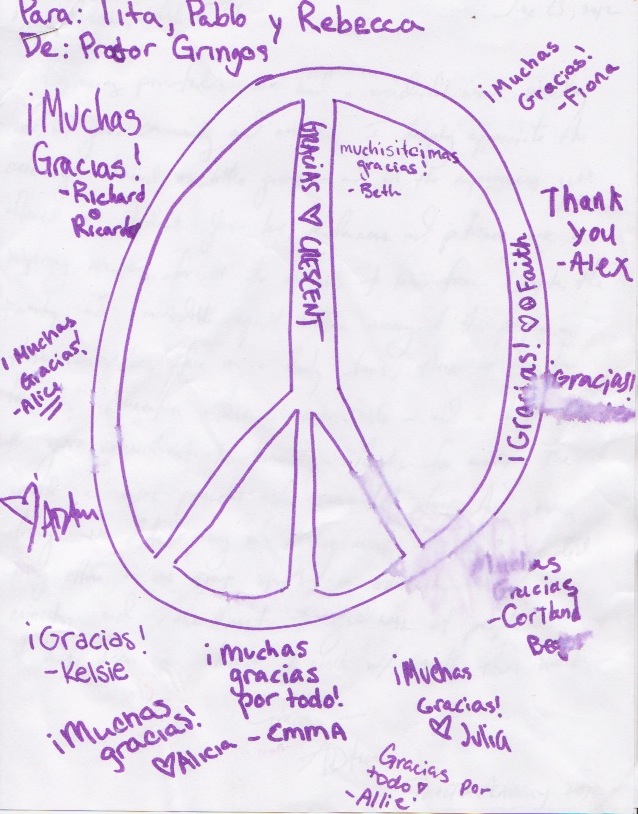 Para: Tita, Pablo y Rebecca
De: Proctor Gringos
¡Muchas
Gracias!
-Fiona
¡Muchas
Gracias!
-Richard
o
Ricardo
GRACIAS ♡ CRESCENT
muchisitcimas
gracias!
- Beth
Thank
you
-ALEX
¡Gracias! ♡ ☮ Faith
¡Muchas
Gracias!
-Alice
¡Gracias!
♡
Muchas
Gracias
-Cortland
¡Gracias!
-Kelsie
¡Muchas
gracias
por todo!
- EmmA
¡Muchas
Gracias!
♡ Julia
¡Muchas
gracias!
♡Alicia
Gracias por
todo!
-Allie